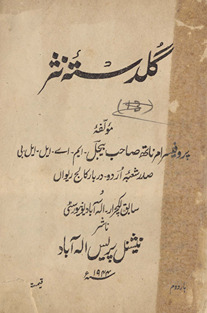 گلدستۂ نثر
مولفۂ
پروفیسر رام ناتھ صاحب بیجل۔ ایم۔ اے۔ ایل۔ ایل۔ بی
صدر شعبۂ اُردو۔ دربار کالج ریواں
و
سابق لکچرار۔ الہ آباد یونیورسٹی
ناشر
نیشنل پریس الہ آباد
۱۹۴۴ء
باردوم
قیمت